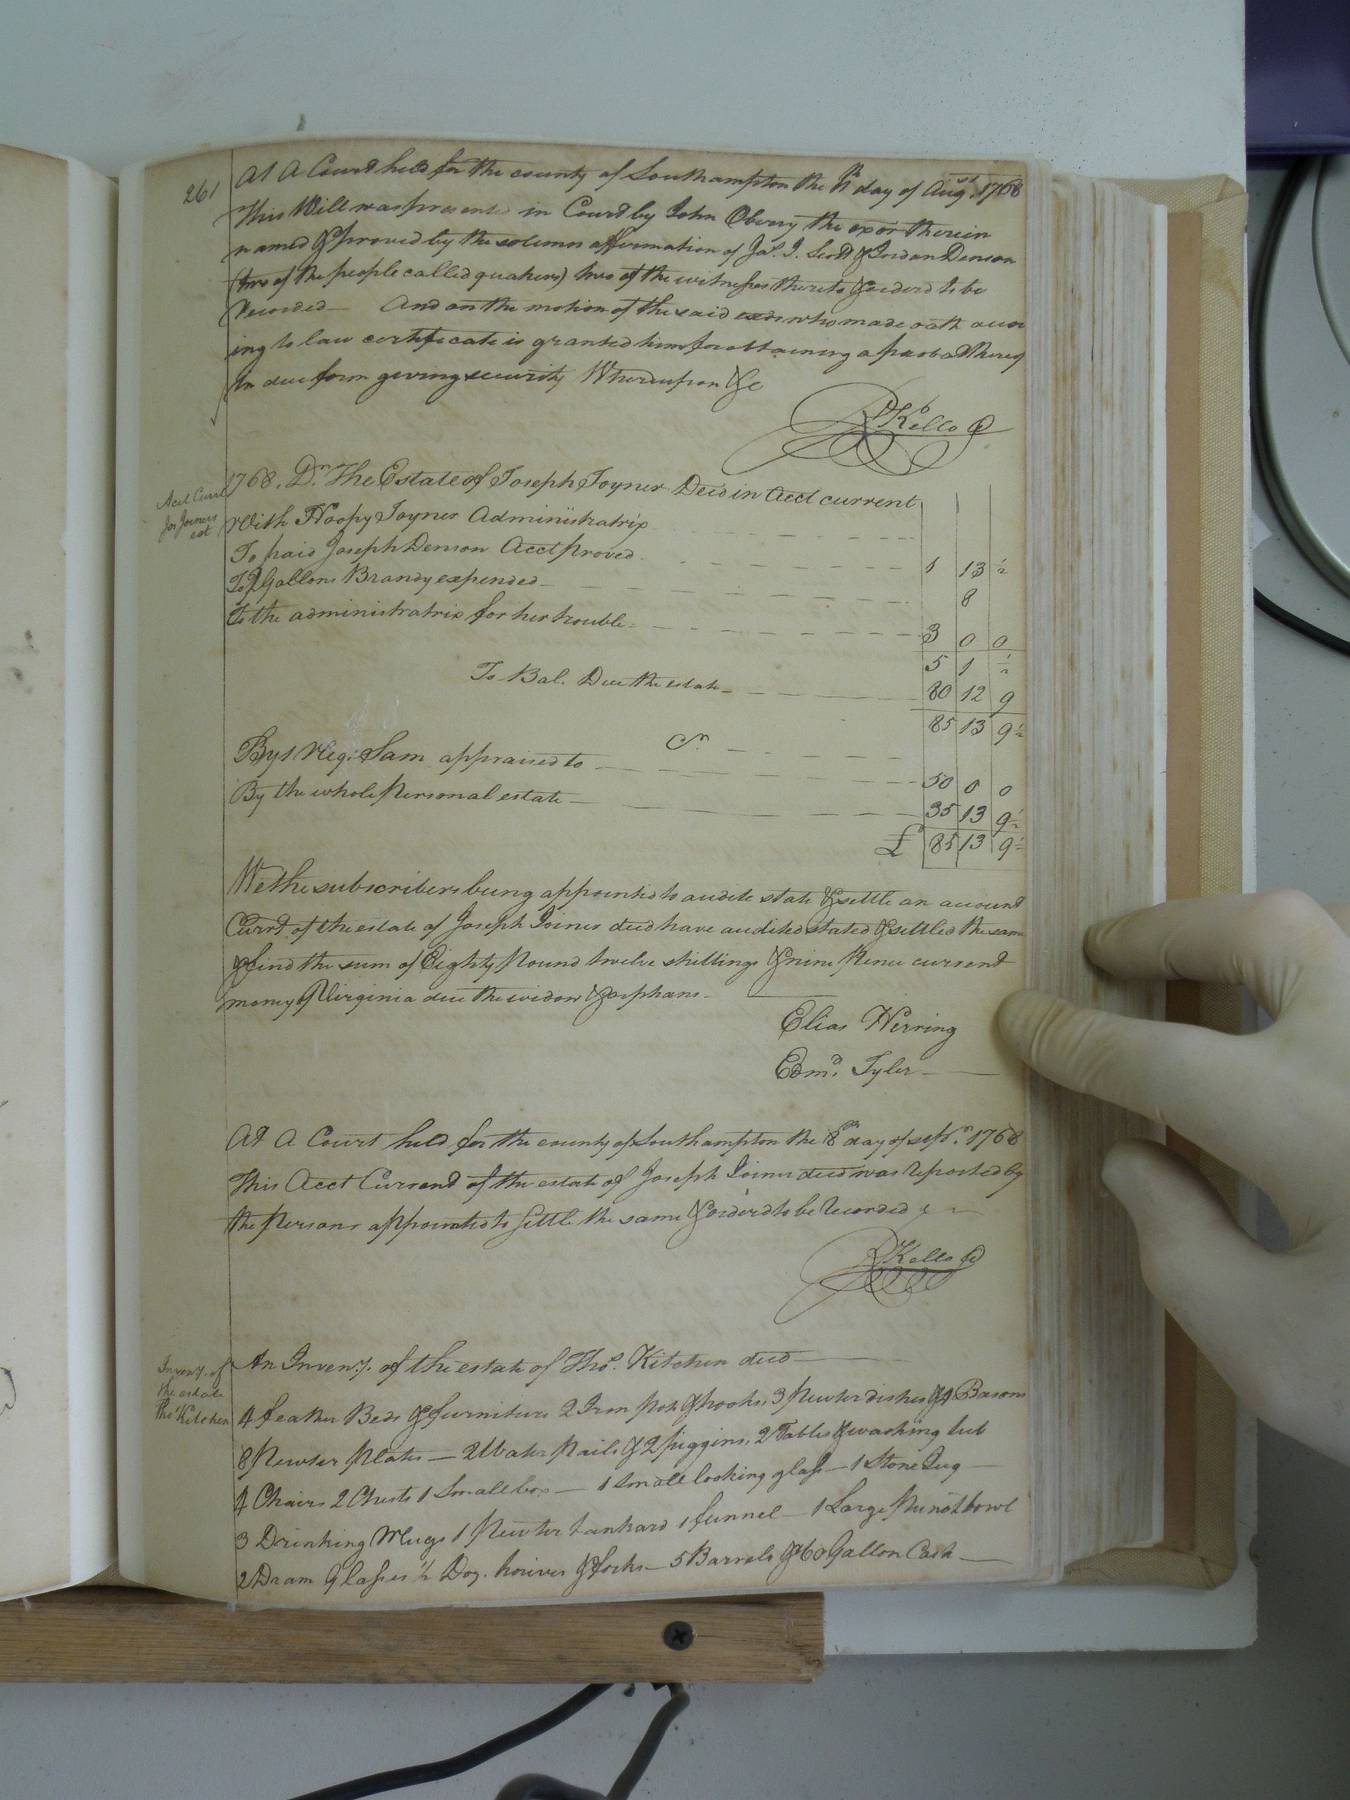 261
At A Court held for the county of Southampton the 11th day of Augst. 1768
This Will was presented in Court by John Oberry the exor therein
named & proved by the solemn affirmation of Jas. J. Scott & Jordan Denson
(two of the people called quakers) two of the witnesses thereto & orderd to be
Recorded — And on the motion of the said who made oath accor
ing to law certificate is granted him for obtaining a probat thereof
In due form giving security Whereupon &c
RKello
Acct Curr
Jos Joiners
est
1768. Dr. The Estate of Joseph Joyner Decd in Acct current
With Hoopy Joyner Administratrix
To paid Joseph Denson Acct proved 1 13 ½
To 2 Gallons Brandy expended 8
To the administratrix for her trouble 3 0 0
5 1 ½
To Bal. Due the estate 80 12 9
85 13 9½
Cr
By 1 Neg: Sam appraised to 50 0 0
By the whole Personal estate 35 13 9½
£ 85 13 9½
We the subscribers being appointed to audite state & settle an account
Currt. of the estate of Joseph Joiner decd have audited stated & settled the same
& find the sum of Eighty Pound twelve shillings & nine Pence current
money of Virginia due the widow & orphans
Elias Herring
Edmd. Tyler
At A Court held for the county of Southampton the 8th day of sepr. 1768
This Acct Current of the estate of Joseph Joiner decd was reported by
the Persons appointed to settle the same & orderd to be Recorded
RKello
Inventy. of
the estate
Thos Kitchen
An Inventy. of the estate of Thos. Kitchen decd
4 feather Beds & furniture 2 Iron pots & hooks, 3 Pewter dishes & 4 Basons
8 Pewter Plates — 2 Water Pails & 2 piggins, 2 Tables & washing tub
4 Chairs 2 Chests 1 Small box — 1 Small looking glass — 1 Stone Jug
3 Drinking Mugs 1 Pewter tankard 1 funnel — 1 Large Punch bowl
2 Dram Glasses ½ Doz. knives & forks — 5 Barrels & 60 Gallon Cask